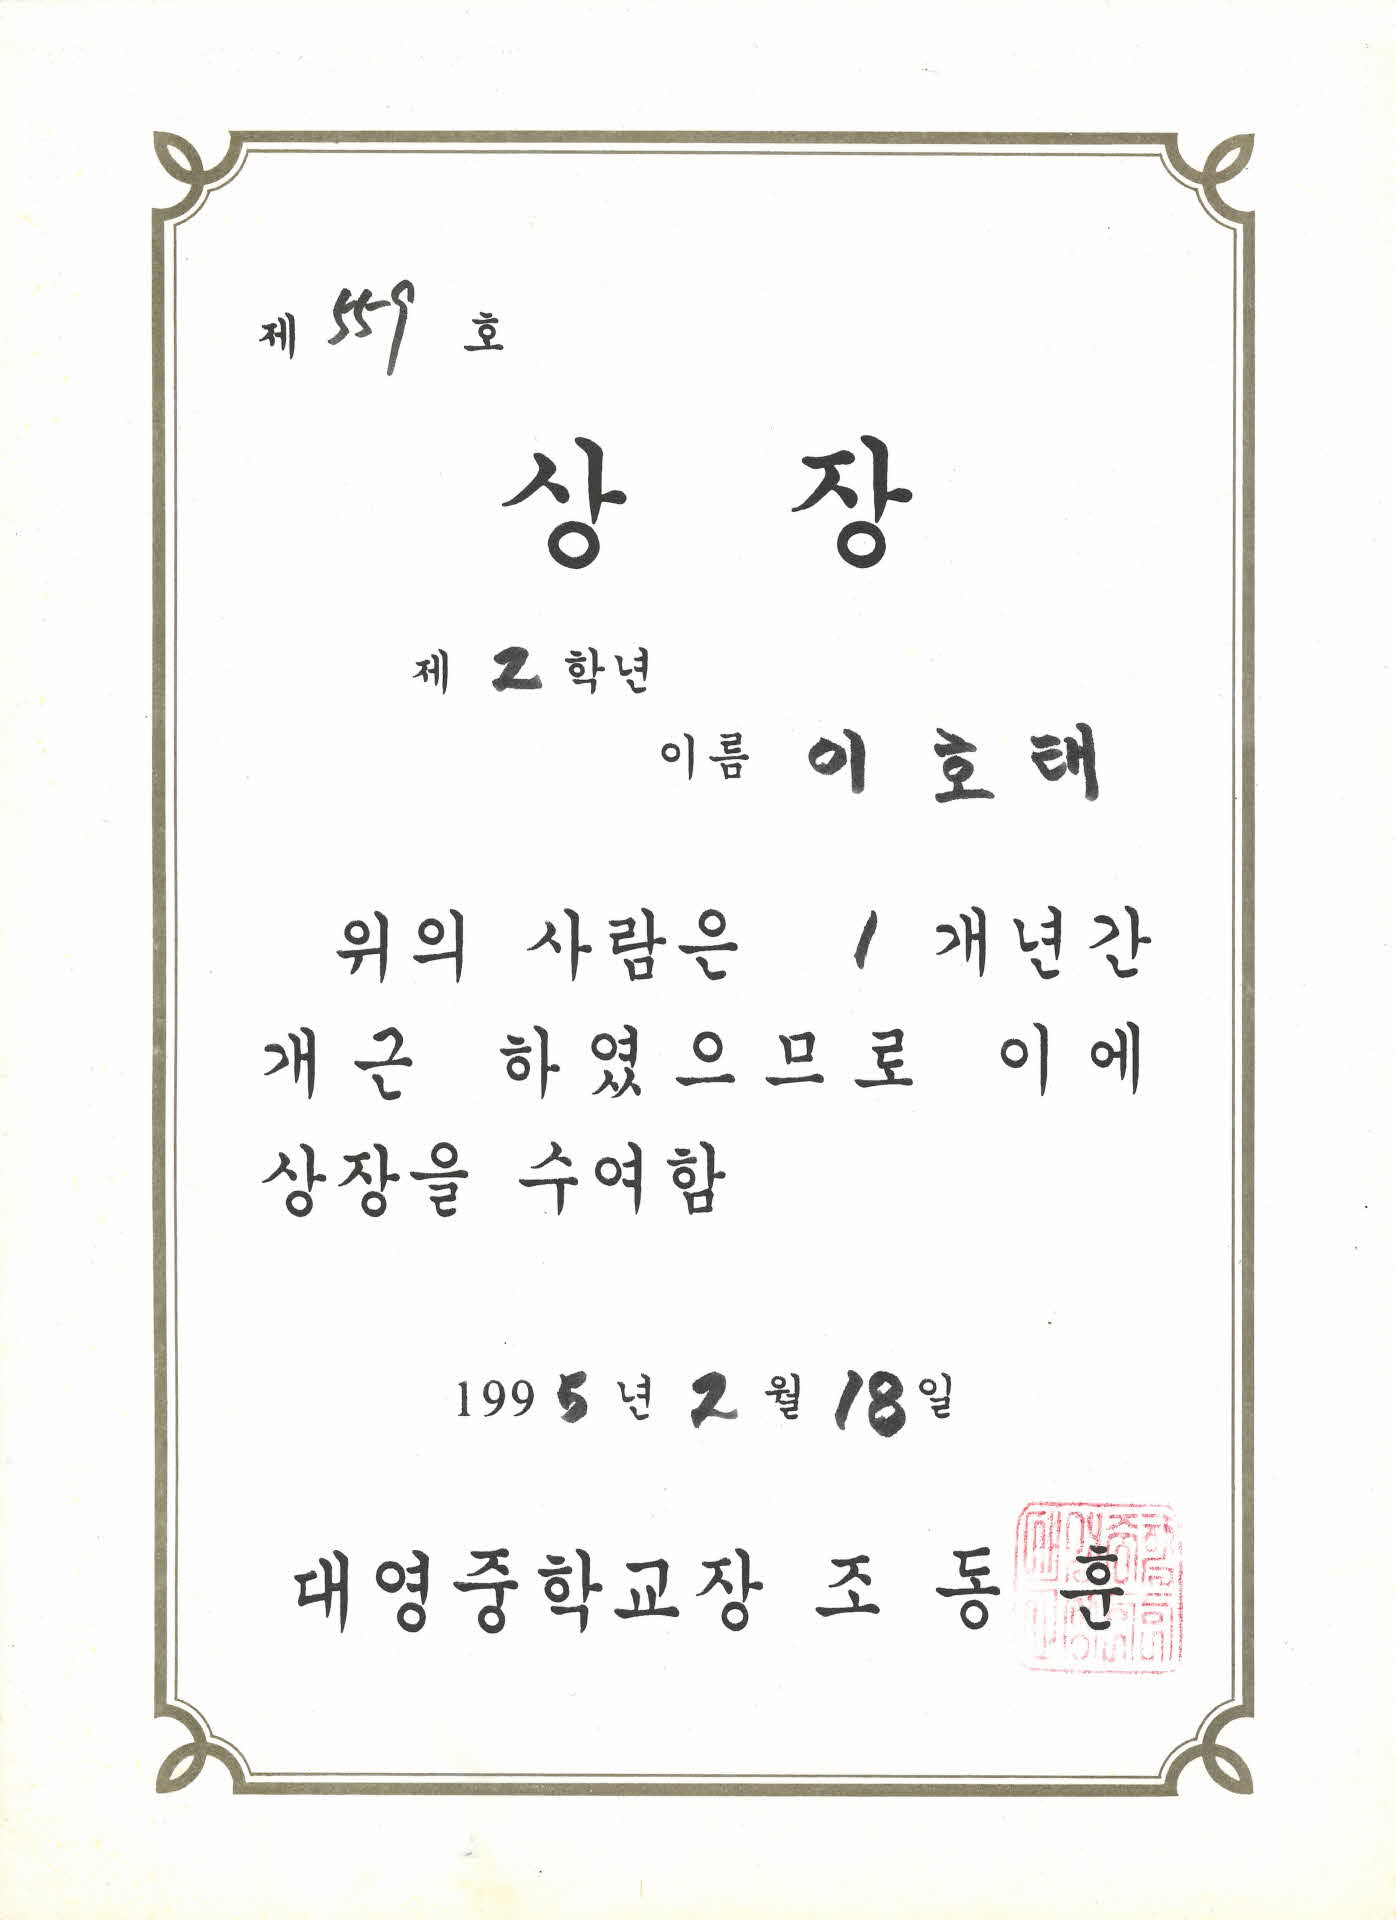 제 559 호
상 장
제 2 학년
이름 이 호 태
위의 사람은 1 개년간
개근 하였으므로 이에
상장을 수여함
1995 년 2 월 18 일
대영중학교장 조 동 훈